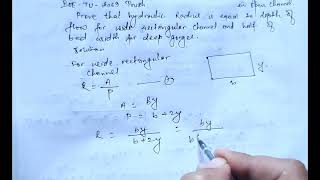 in open channel
Prove that hydraulic Radius is equal to depth of
flow for wide rectangular channel and half of
bed width for deep gorges.
Solution
For wide rectangular
channel
R = A/P
y
b
A = By
P = b + 2y
R = by/b+2y = by/b